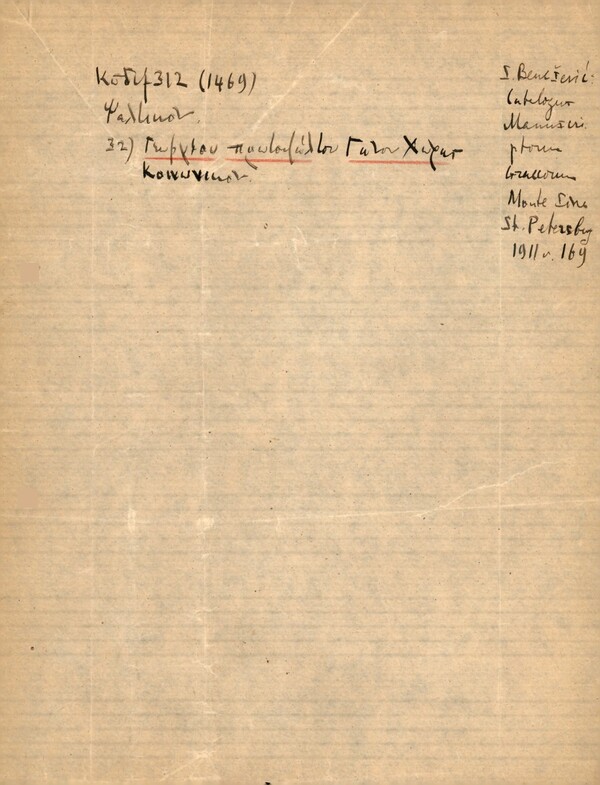 Κωδιξ 312 (1469)
Ψαλτικον.
32) Γεωργιου πρωτοψαλτου Γάνου Χώρας
Κοινωνικον
I. Benešević:
Catalogus
Manuscri
ptorum
Graecorum
Monte Sina
St. Petersburg
1911 σ. 169